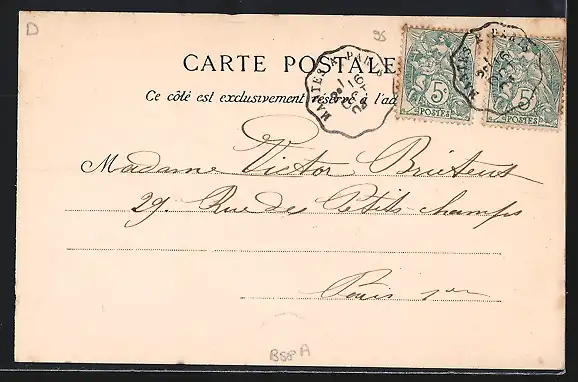 D
95
CARTE POSTALE
Ce côté est exclusivement réservé à l'ad
MANTES A PARIS
5
POSTES
5
POSTES
Madame Victor Bruteus
29. Rue des Petits-champs
Paris 1er
B58A